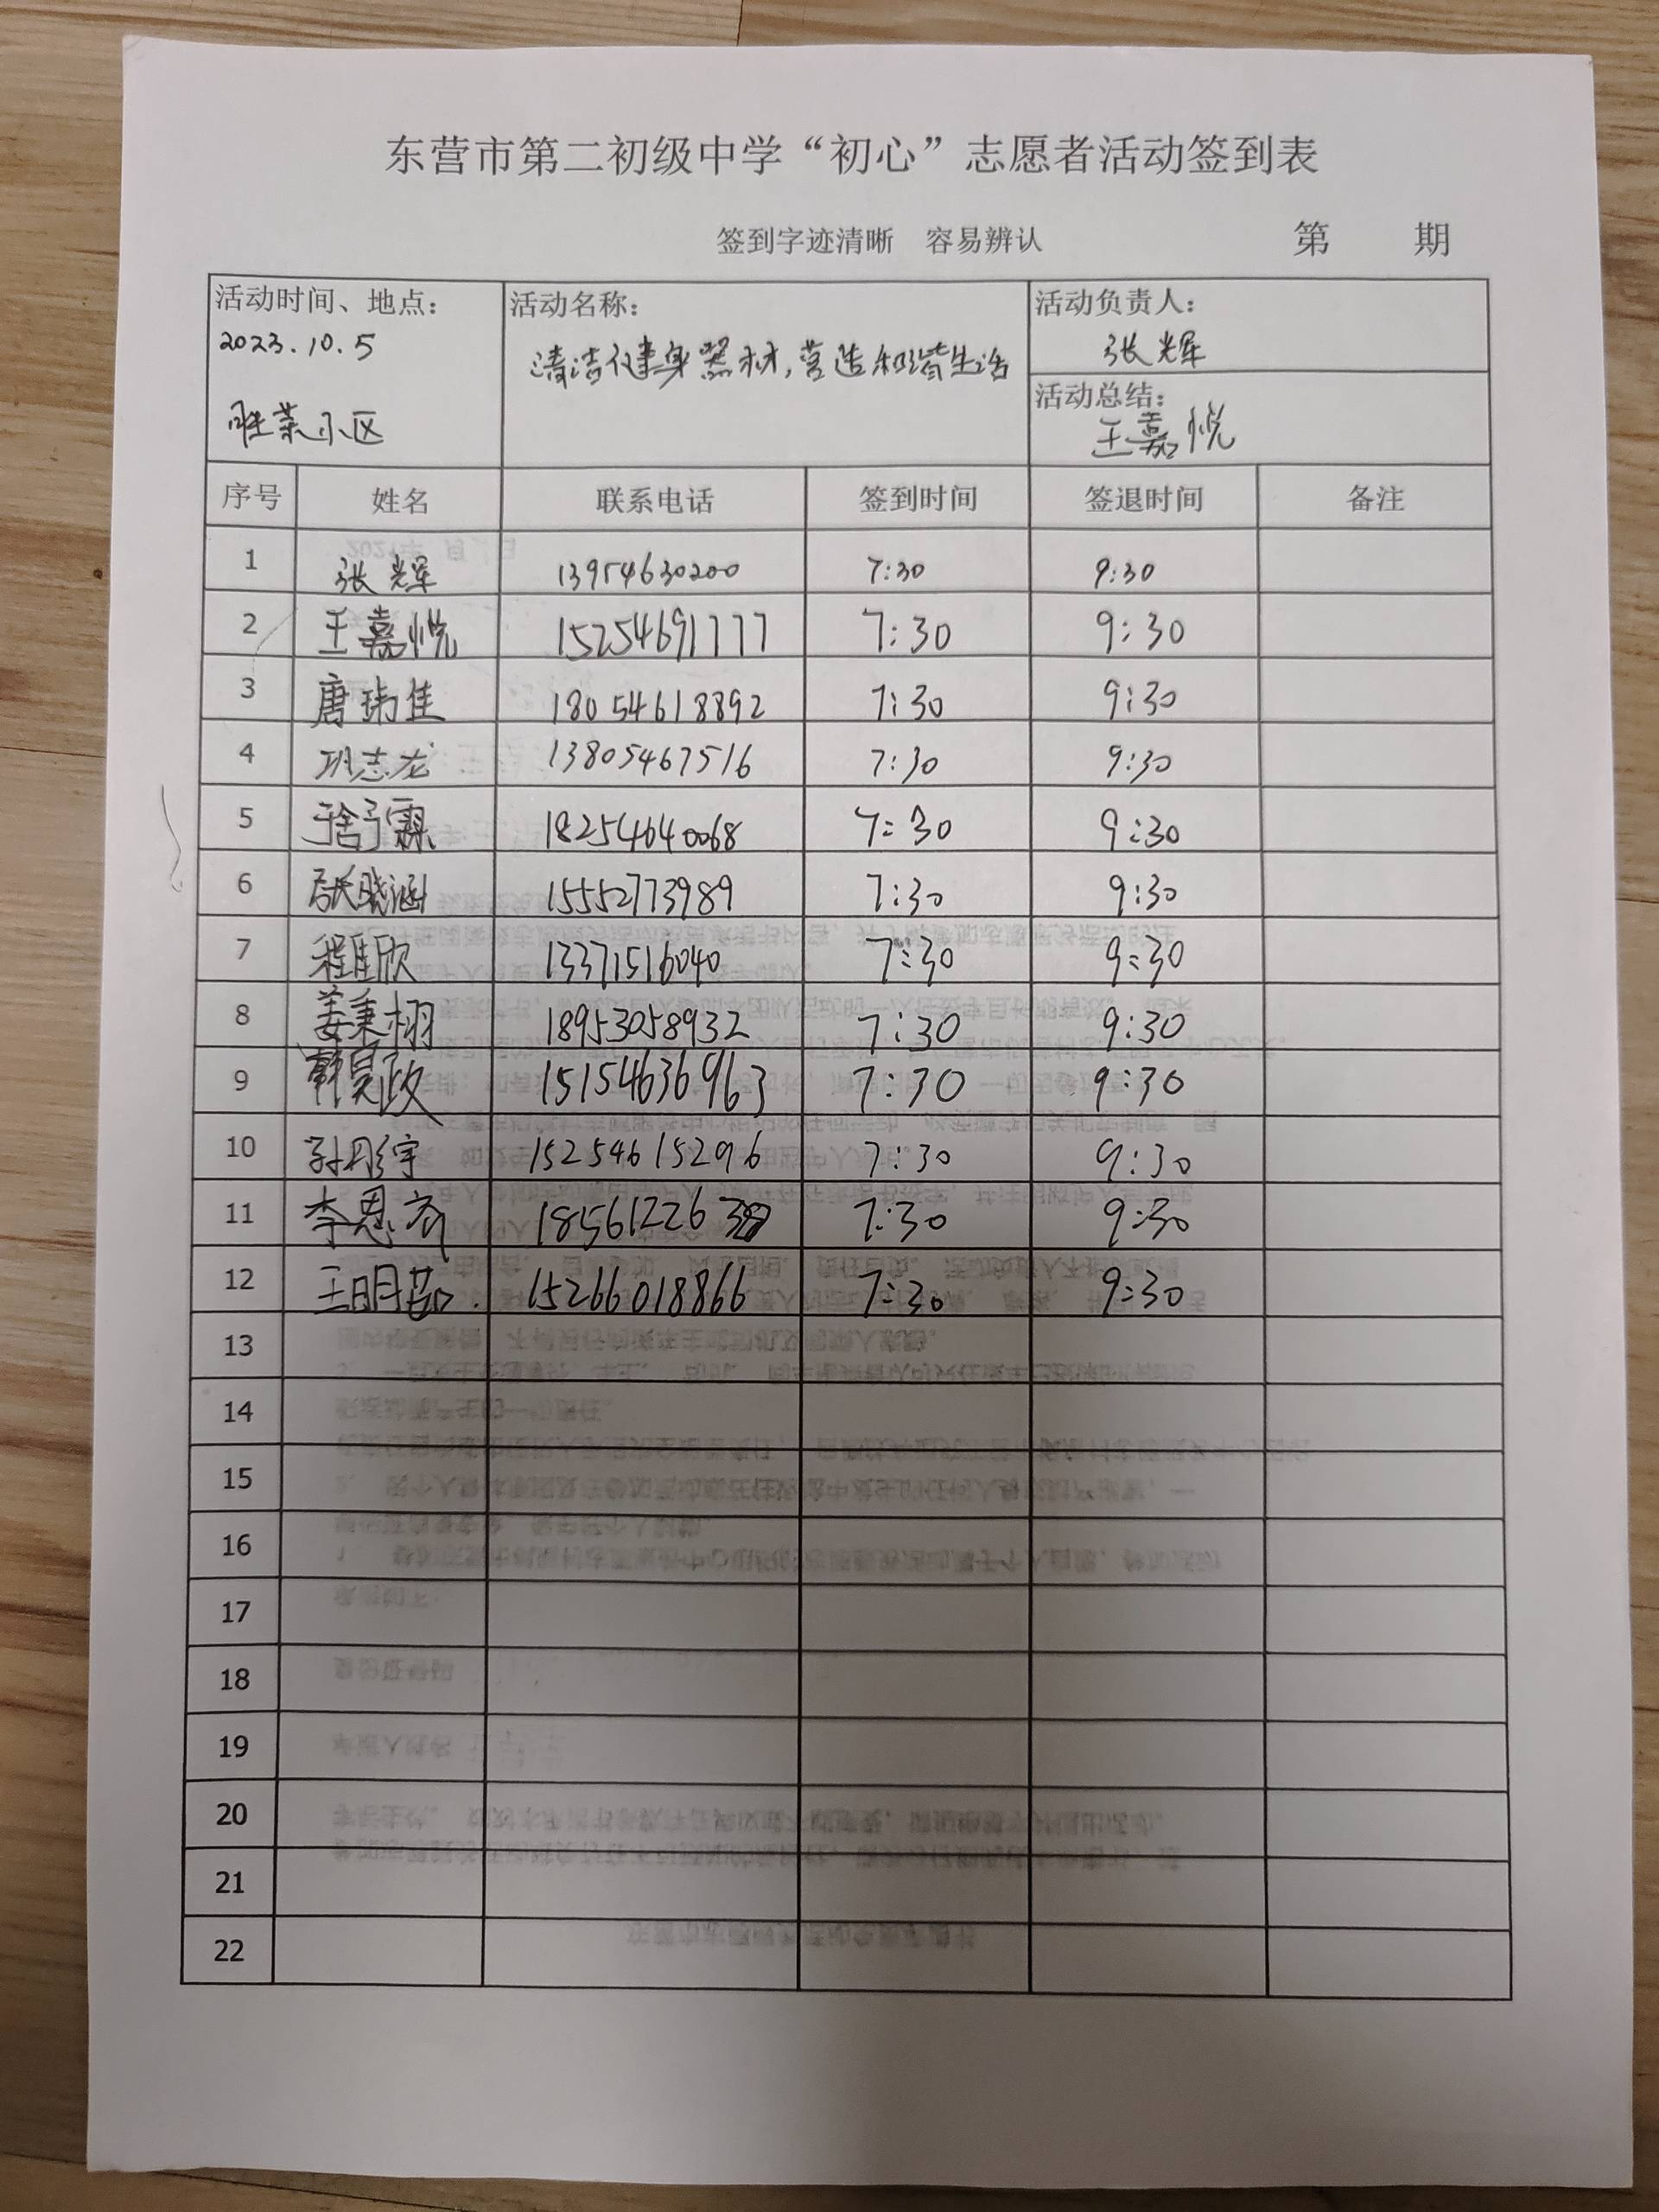 东营市第二初级中学“初心”志愿者活动签到表
签到字迹清晰 容易辨认 第 期
活动时间、地点： 活动名称： 活动负责人：
2023.10.5 清洁健身器材,营造和谐生活 张辉
胜荣小区 活动总结：王嘉悦
序号 姓名 联系电话 签到时间 签退时间 备注
1 张辉 13954630200 7:30 9:30
2 王嘉悦 15254691777 7:30 9:30
3 唐玮佳 18054618892 7:30 9:30
4 巩志龙 13805467516 7:30 9:30
5 18254640068 7:30 9:30
6 张晓涵 15552773989 7:30 9:30
7 程佳欣 13371516040 7:30 9:30
8 姜秉栩 18953058932 7:30 9:30
9 韩昊政 15154636963 7:30 9:30
10 孙彤宇 15254615296 7:30 9:30
11 李恩齐 7:30 9:30
12 王明茹 15266018866 7:30 9:30
13
14
15
16
17
18
19
20
21
22